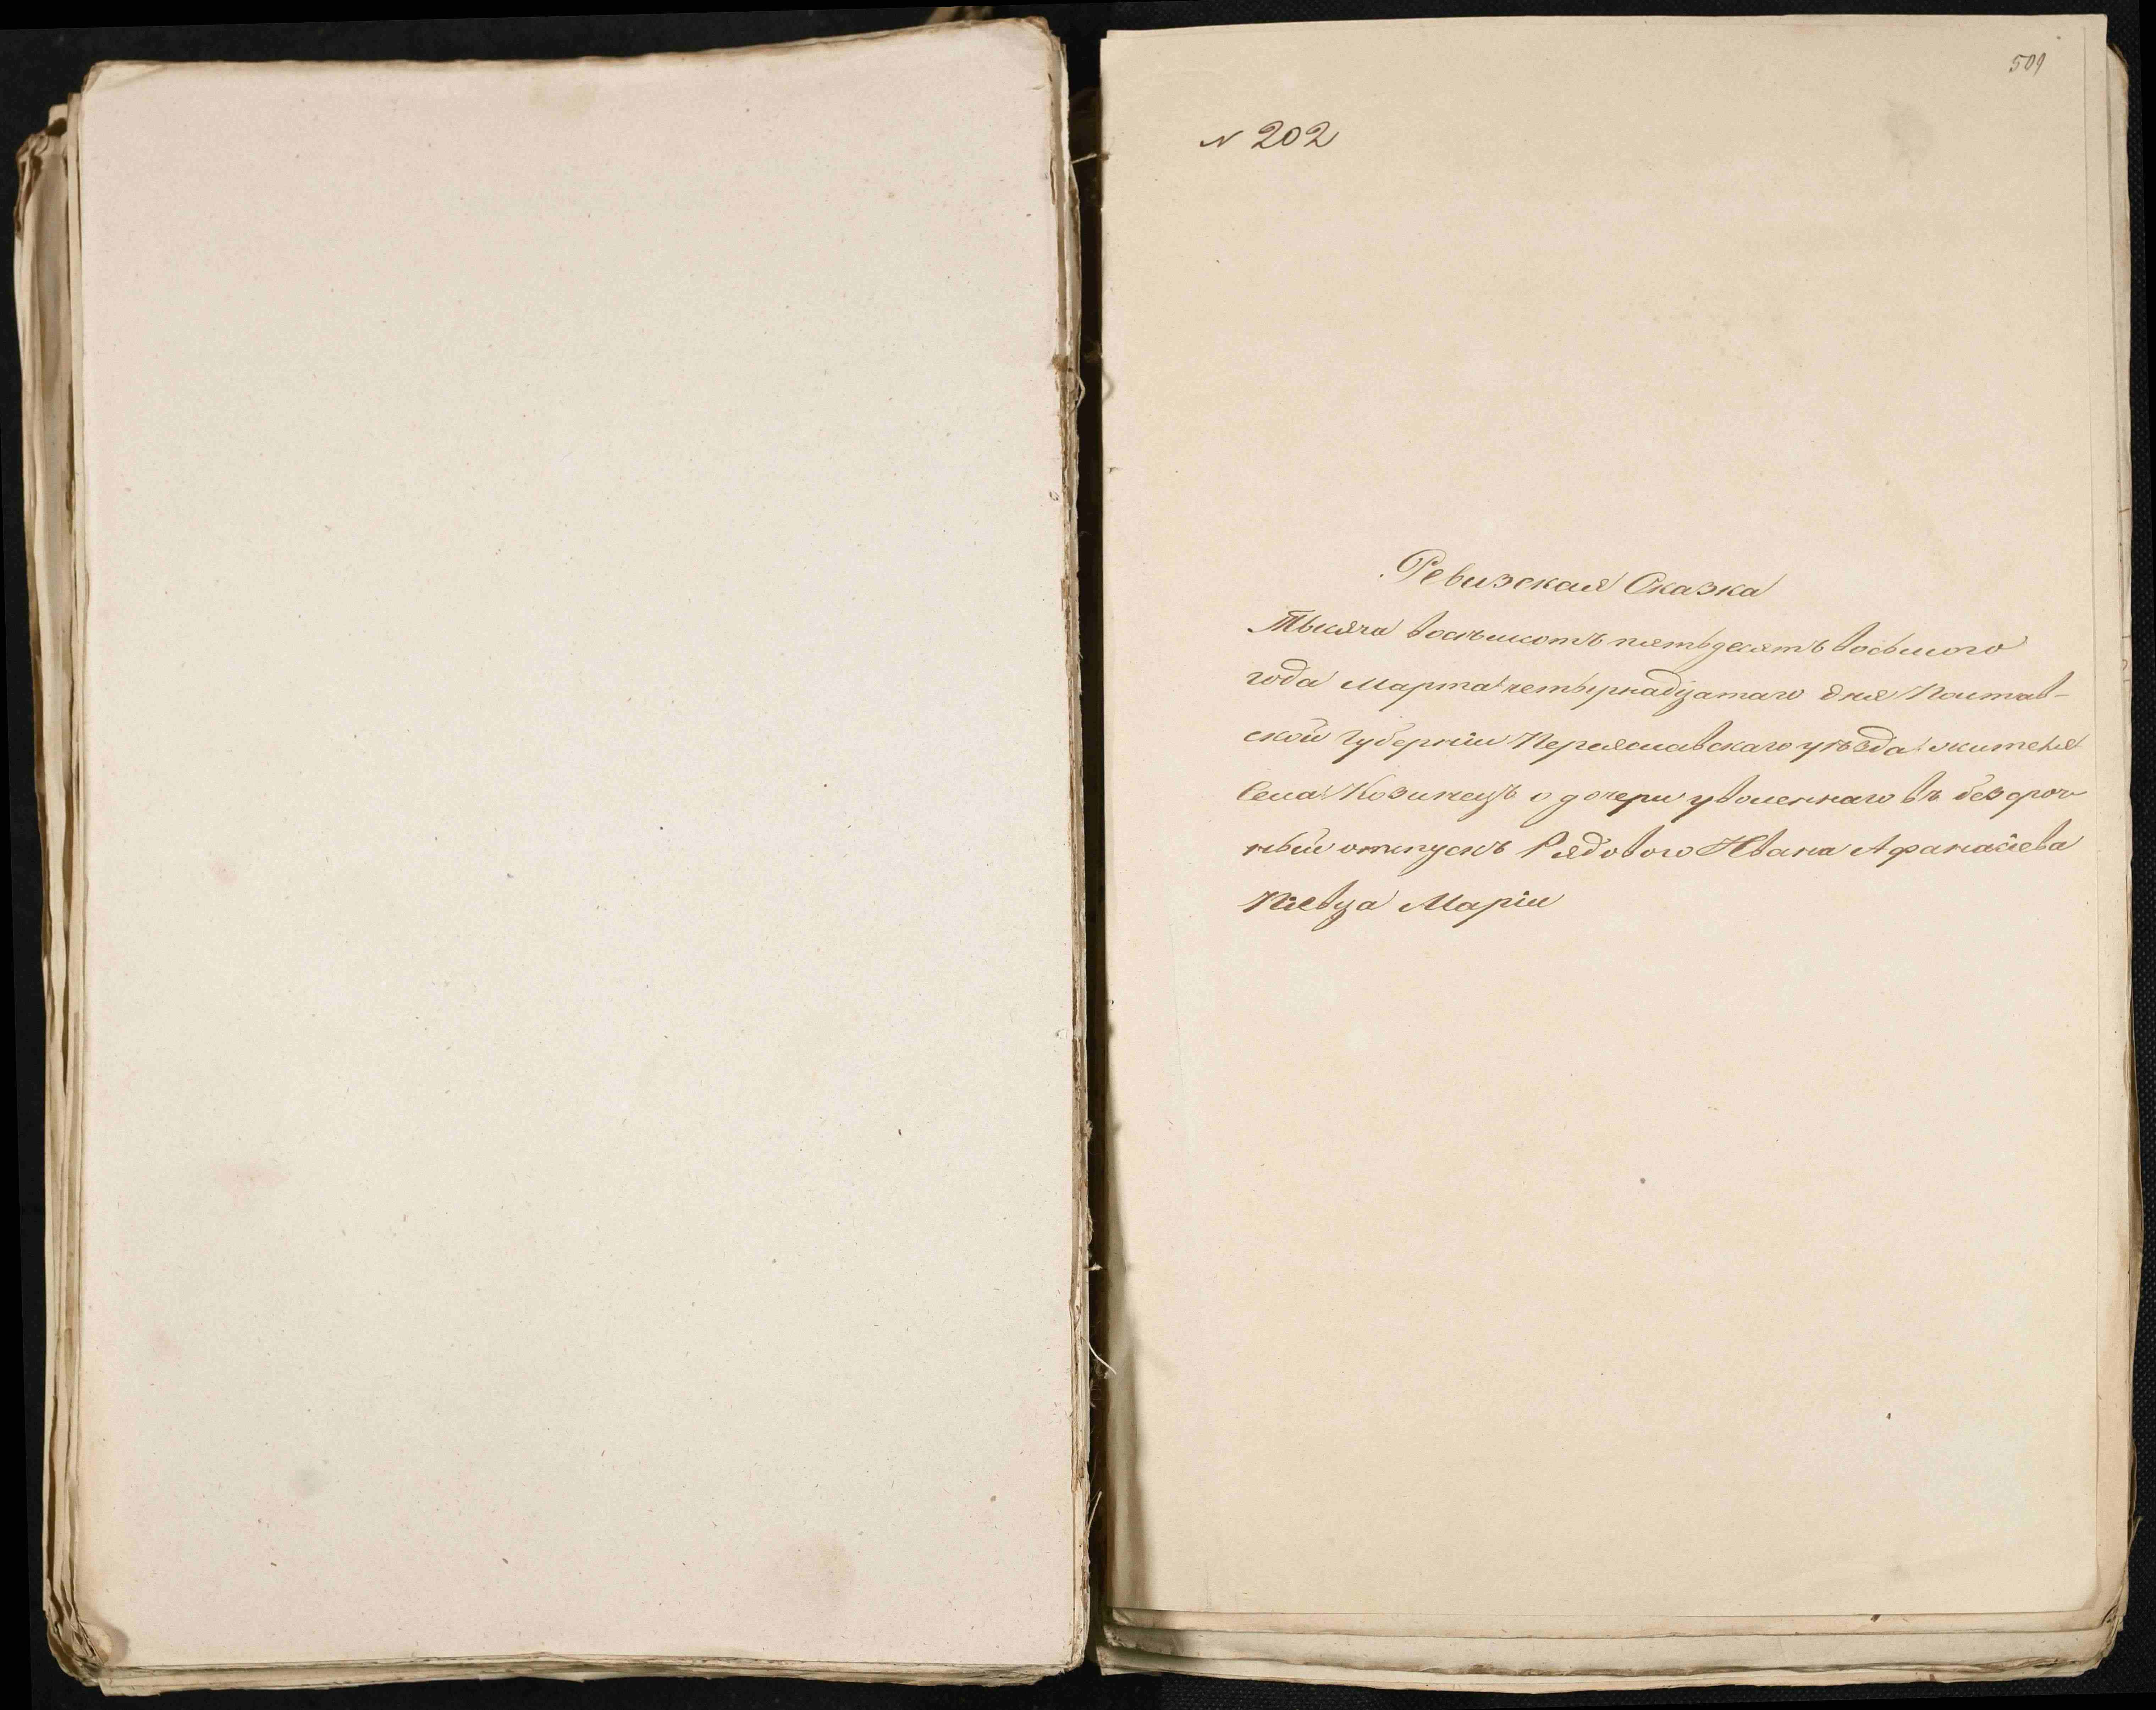 509
№ 202
Ревизская Сказка
Тысяча восемьсотъ пятьдесятъ восьмого
года Марта четырнадцатаго дня Полтав-
ской Губерніи Переяславскаго уѣзда жителя
Села Козинецъ о дочери уволеннаго въ безсроч-
ный отпускъ Рядового Ивана Афанасіева
Кіевца Маріи